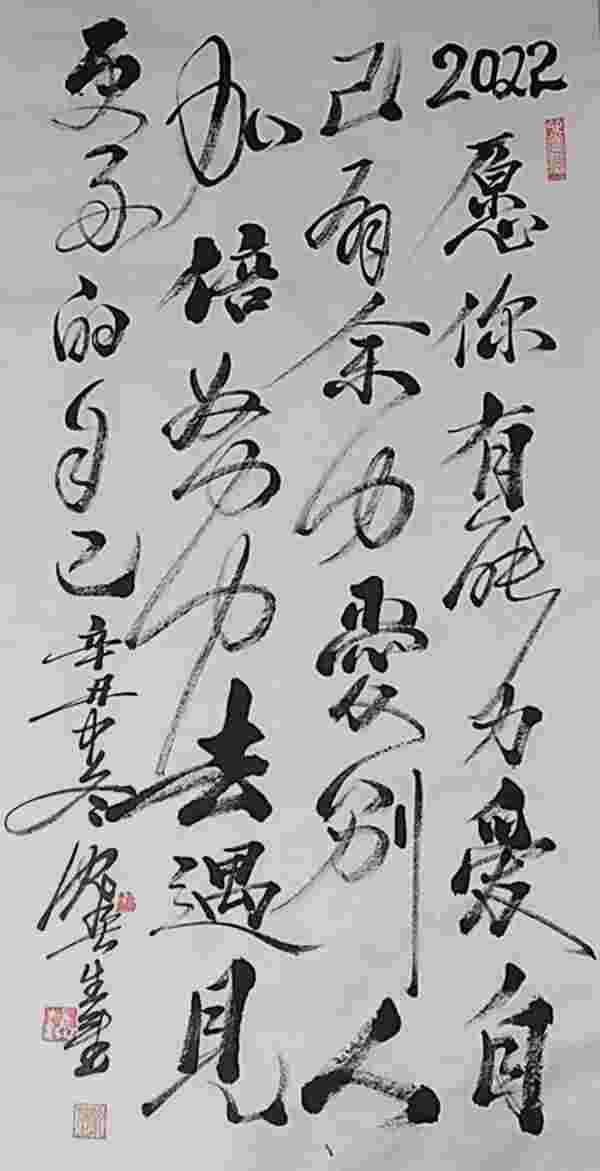 2022愿你有能力爱自
己有余力爱别人
加倍努力去遇见
更好的自己 辛丑中冬